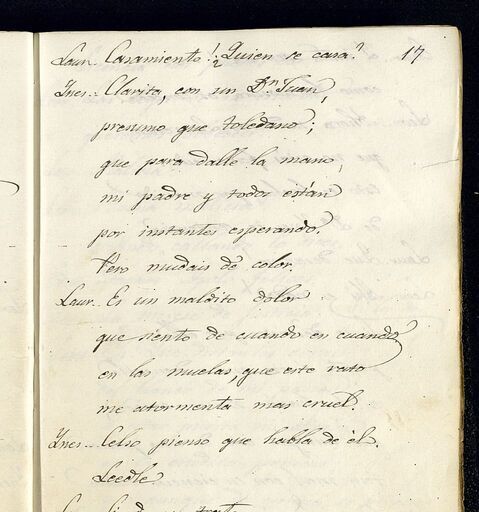 Laur- Casamiento! ¿Quien se casa? 17
Ynes- Clarita, con un Dn Juan,
presumo que toledano;
que para dalle la mano,
mi padre y todos están
por instantes esperando.
Pero mudais de color.
Laur- Es un maldito dolor
que siento de cuando en cuando
en las muelas, que este rato
me atormenta mas cruel.
Ynes- Celio pienso que habla de él.
Leedle.